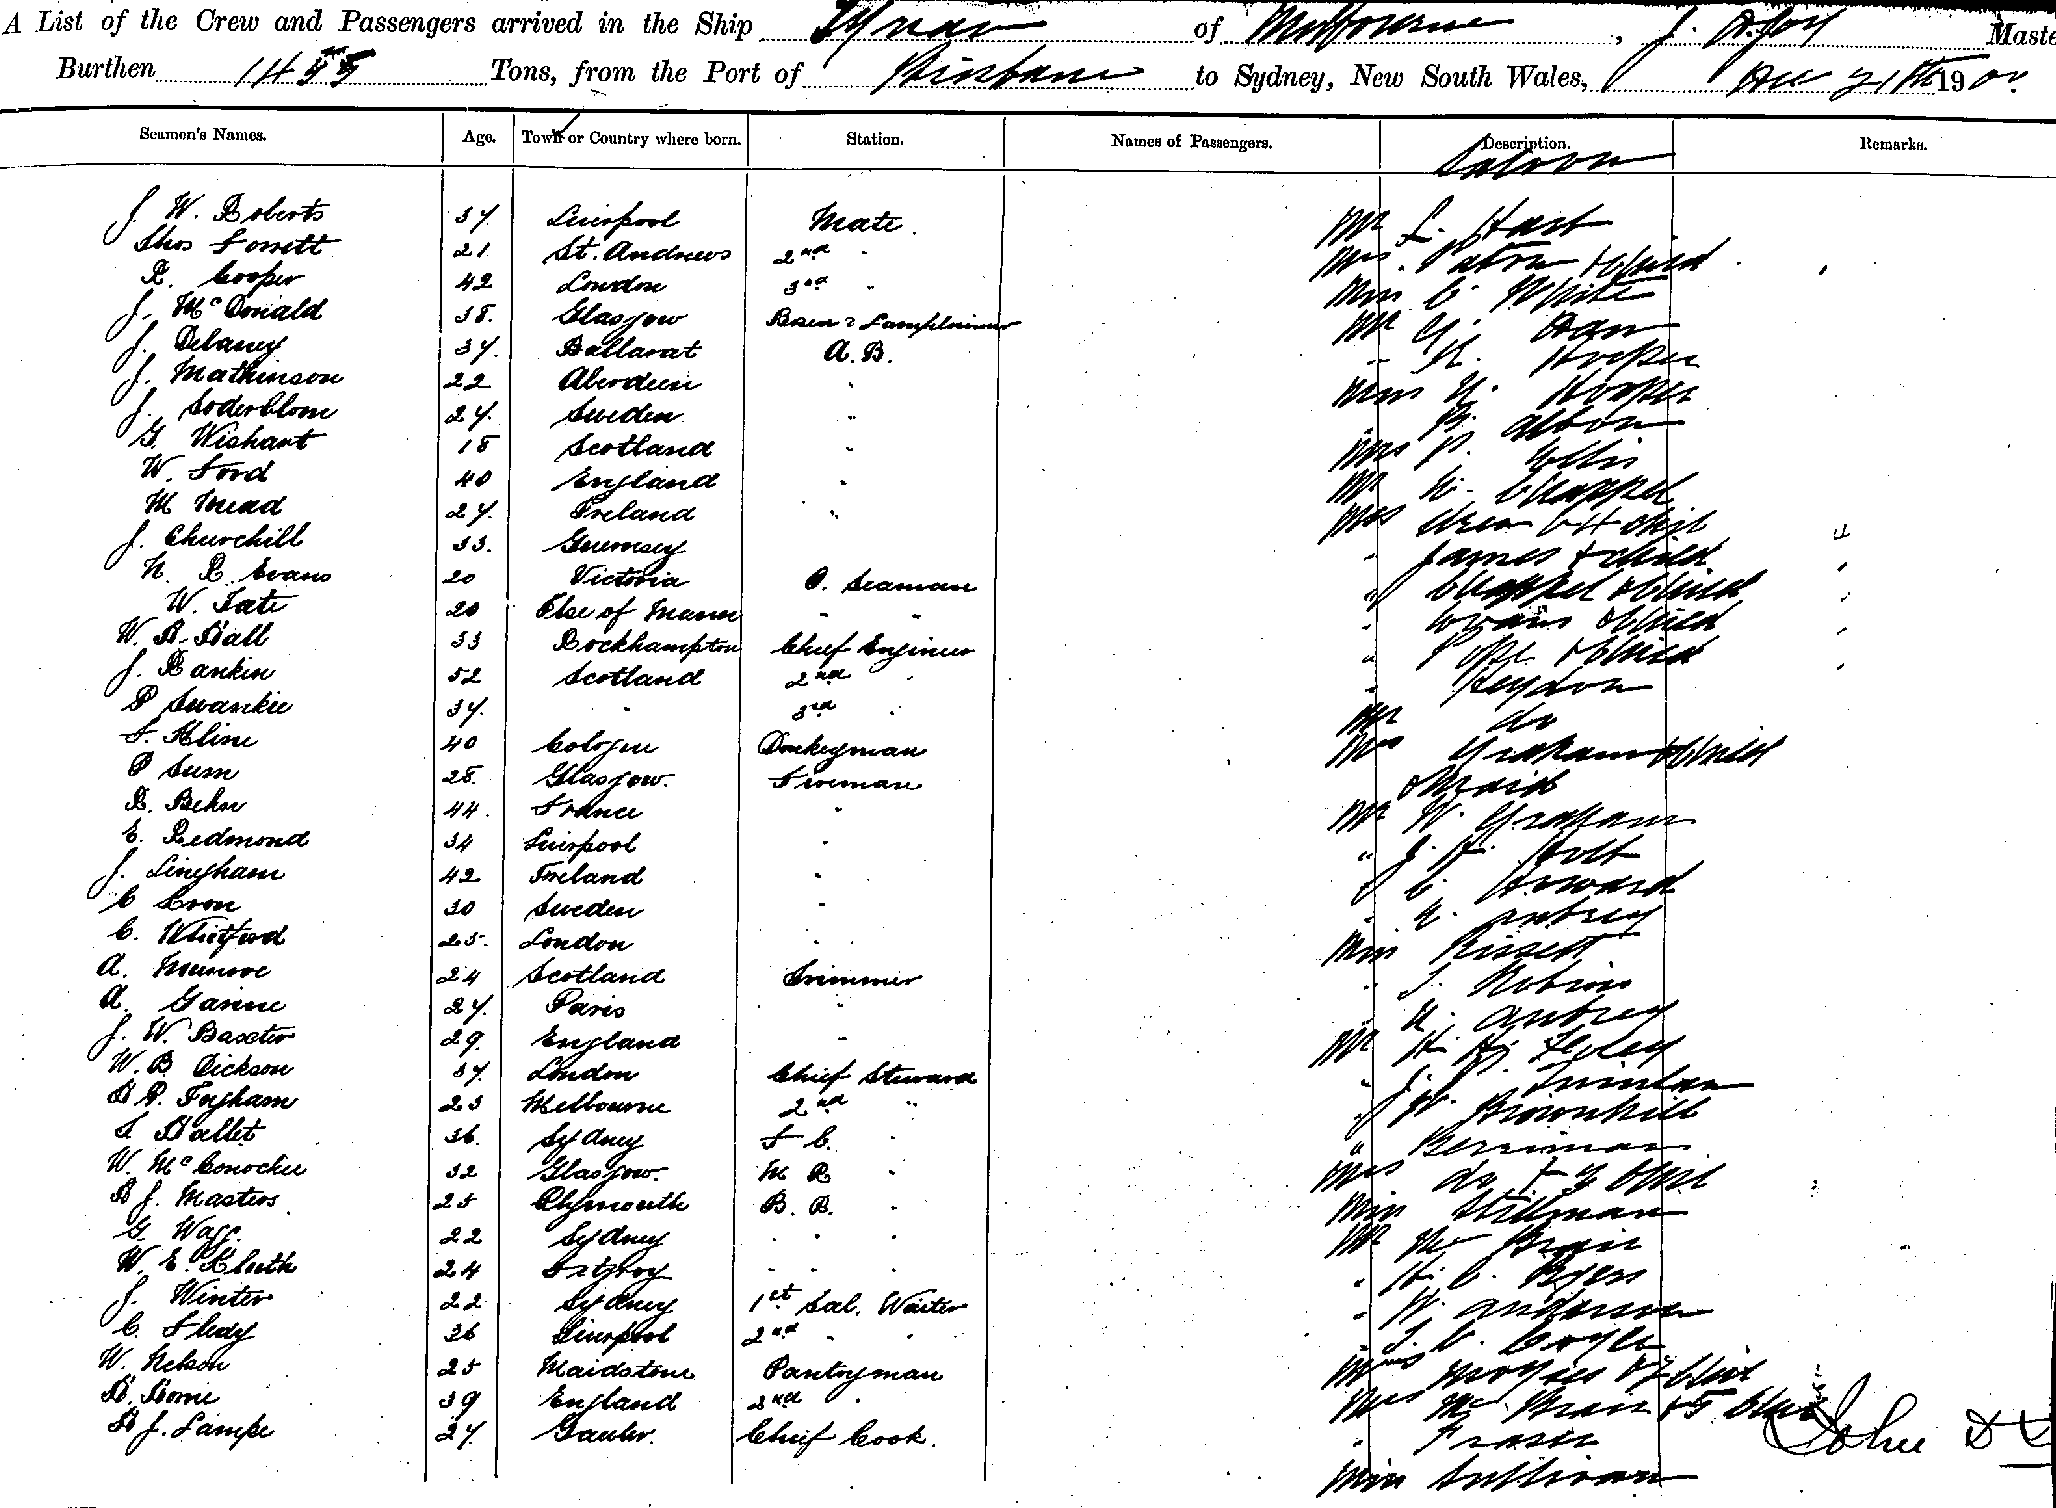 A List of the Crew and Passengers arrived in the Ship Tyrian of Melbourne, J. Maste
Burthen 1455 Tons, from the Port of Brisbane to Sydney, New South Wales, 21st 190
Seamen's Names. Age. Town or Country where born. Station. Names of Passengers. Description. Remarks.
Saloon
J. W. Roberts 37. Liverpool Mate. Mr L. Hart
Thos Forrett 21. St. Andrews 2nd " Mrs. Paton & child
R. Cooper 42 London 3rd " Miss C. White
J. McDonald 38. Glasgow Bosn & Lamptrimmer Mr G.
J. Delaney 37. Ballarat A.B. " H. Hooper
J. Mathinson 22 Aberdeen " Miss N. Hooper
J. Soderblom 27. Sweden " " B. Albon
G. Wishart 18 Scotland " Mrs P. Ellis
W. Ford 40 England " Mr H. Chappel
M Mead 27. Ireland " Mrs
J. Churchill 33. Guernsey " James & child
H. R. Evans 20 Victoria O. Seaman " Chappel & child
W. Tate 20 Isle of Mann " " " Evans & child
W. H. Hall 33 Rockhampton Chief Engineer " Pope & child
J. Rankin 52 Scotland 2nd " " Heydon
P Swankie 37. " 3rd " Mr do
F. Kline 40 Cologne Donkeyman Mrs Graham & child
P Sum 28. Glasgow. Fireman & Maid
R. Behn 44. France " Mr W. Graham
E. Redmond 34 Liverpool " " J. H. Holt
J. Lingham 42 Ireland " " C. Howard
C Cron 30 Sweden " " E. Aubrey
C. Whitford 25. London " Miss Bissett
A. Munroe 24 Scotland Trimmer " S. Robins
A. Garine 27. Paris " " N. Aubrey
J. W. Baxter 29 England " Mr H. H.
W. B. Dickson 37. London Chief Steward " J. P. Quinlan
H P. Ingham 23 Melbourne 2nd " " J W. Brownhill
S Hallet 36. Sydney F C. " " Berriman
W. McConochie 32 Glasgow. M R " Mrs do + 3 chil
H J. Masters 25 Plymouth B. B. " Miss Stillman
G. Wass 22 Sydney " " " Mr
W. E. Kluth 24 Fitzroy " " " " H. C. Byers
J. Winter 22 Sydney 1st Sal. Waiter " W. Anderson
C. Fledy 36 Liverpool 2nd " " " S. C. Coyle
W. Nelson 25 Maidstone Pantryman Mrs
H. Horne 39 England 2nd " Mrs
H J. Lampe 27. Gawler. Chief Cook. " Fraser
Miss Sullivan
John